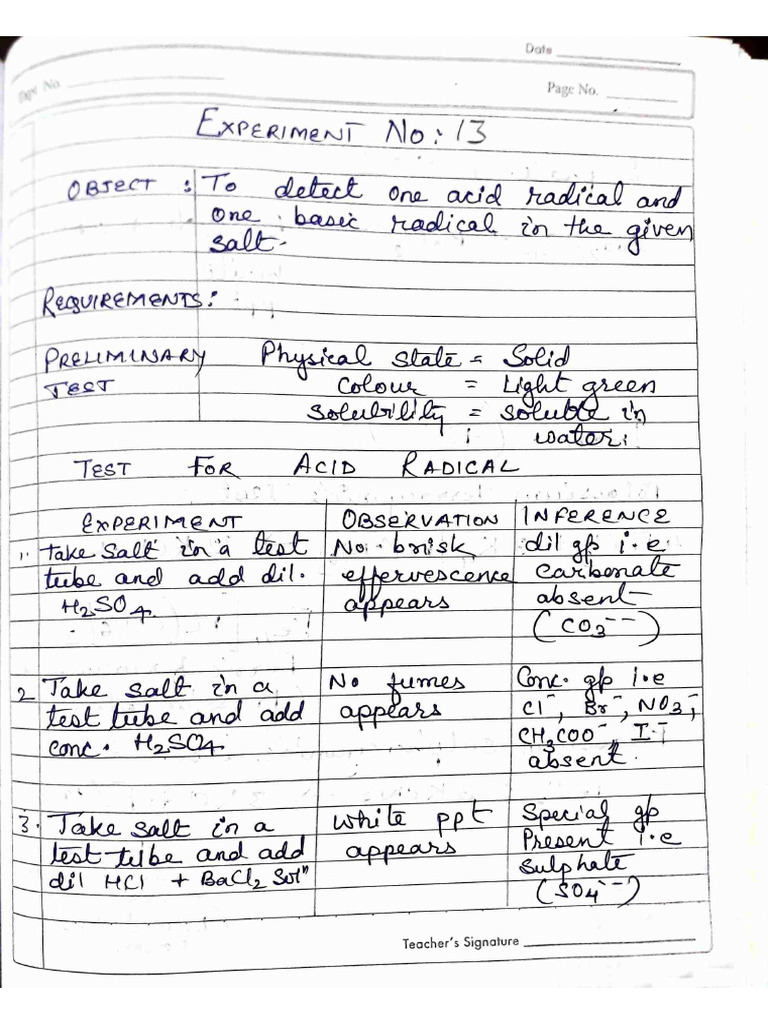 Date
Expt. No.
Page No.
EXPERIMENT No: 13
OBJECT : To detect one acid radical and
one basic radical in the given
salt.
REQUIREMENTS:
PRELIMINARY Physical state = Solid
TEST Colour = Light green
Solubility = soluble in
water.
TEST FOR ACID RADICAL
EXPERIMENT OBSERVATION INFERENCE
1. Take salt in a test No brisk dil gp i.e
tube and add dil. effervescence carbonate
H2SO4 appears absent
(CO3--)
2 Take salt in a No fumes Conc. gp i.e
test tube and add appears Cl-, Br-, NO3-,
conc. H2SO4 CH3COO-, I-
absent.
3. Take salt in a white ppt Special gp
test tube and add appears Present i.e
dil HCl + BaCl2 Soln Sulphate
(SO4--)
Teacher's Signature